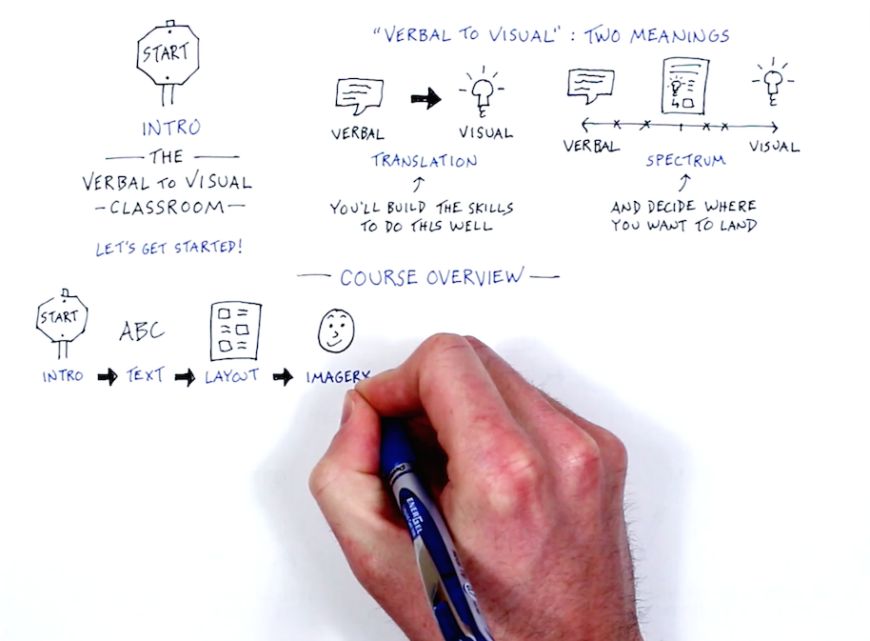 START
INTRO
THE
VERBAL TO VISUAL
CLASSROOM
LET'S GET STARTED!
"VERBAL TO VISUAL" : TWO MEANINGS
VERBAL
VISUAL
TRANSLATION
YOU'LL BUILD THE SKILLS
TO DO THIS WELL
VERBAL
VISUAL
SPECTRUM
AND DECIDE WHERE
YOU WANT TO LAND
COURSE OVERVIEW
START
ABC
INTRO TEXT LAYOUT IMAGERY
ENERGEL